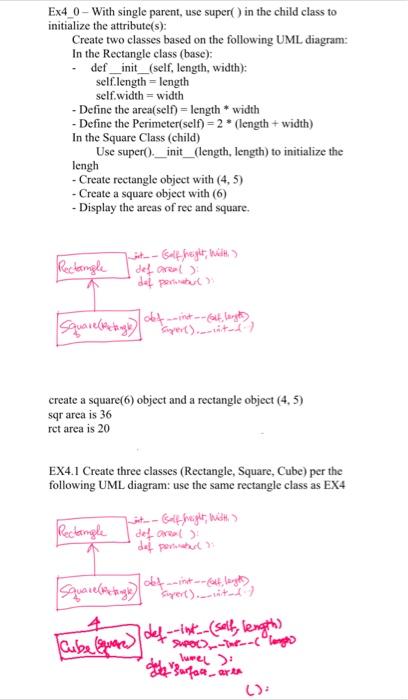 Ex4_0 – With single parent, use super( ) in the child class to
initialize the attribute(s):
Create two classes based on the following UML diagram:
In the Rectangle class (base):
- def __init__(self, length, width):
self.length = length
self.width = width
- Define the area(self) = length * width
- Define the Perimeter(self) = 2 * (length + width)
In the Square Class (child)
Use super().__init__(length, length) to initialize the
lengh
- Create rectangle object with (4, 5)
- Create a square object with (6)
- Display the areas of rec and square.
Rectangle
int-- (self, height, width)
def area( ):
def perimeter( ):
Square(Rectangle)
def --int--(self, length)
super().__init__(
create a square(6) object and a rectangle object (4, 5)
sqr area is 36
rct area is 20
EX4.1 Create three classes (Rectangle, Square, Cube) per the
following UML diagram: use the same rectangle class as EX4
Rectangle
int-- (self, height, width)
def area( ):
def perimeter( ):
Square(Rectangle)
def --int--(self, length)
super().__init__(
Cube (Square)
def --int--(self, length)
super()__int--( length
def volume( ):
def surface_area
( ):